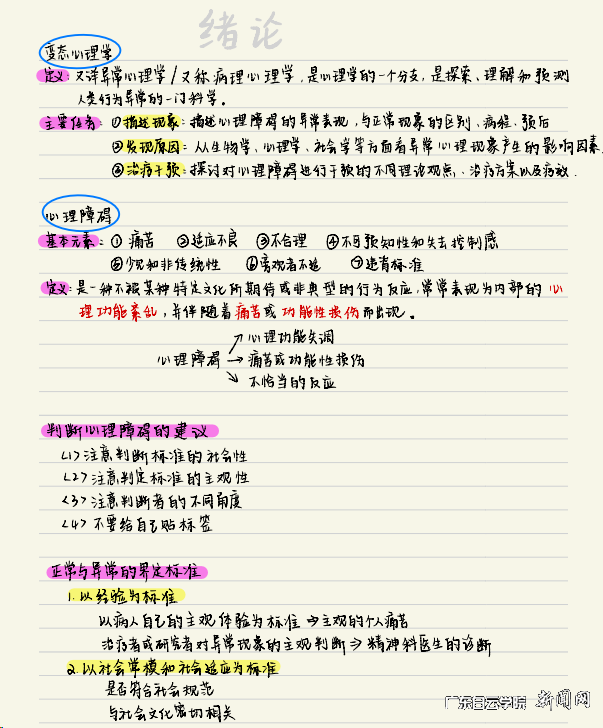 绪论
变态心理学
定义：又译异常心理学/又称病理心理学，是心理学的一个分支，是探索、理解和预测
人类行为异常的一门科学。
主要任务：①描述现象：描述心理障碍的异常表现，与正常现象的区别、病程、预后
②发现原因：从生物学、心理学、社会学等方面看异常心理现象产生的影响因素
③治疗干预：探讨对心理障碍进行干预的不同理论观点、治疗方案以及疗效.
心理障碍
基本元素：① 痛苦 ②适应不良 ③不合理 ④不可预知性和失去控制感
⑤少见和非传统性 ⑥旁观者不适 ⑦违背标准
定义：是一种不被某种特定文化所期待或非典型的行为反应，常常表现为内部的心
理功能紊乱，并伴随着痛苦或功能性损伤而出现。
心理功能失调
心理障碍 → 痛苦或功能性损伤
不恰当的反应
判断心理障碍的建议
<1>注意判断标准的社会性
<2>注意判定标准的主观性
<3>注意判断者的不同角度
<4>不要给自己贴标签
正常与异常的界定标准
1.以经验为标准
以病人自己的主观体验为标准⇒主观的个人痛苦
治疗者或研究者对异常现象的主观判断⇒精神科医生的诊断
2.以社会常模和社会适应为标准
是否符合社会规范
与社会文化密切相关
广东白云学院 新闻网